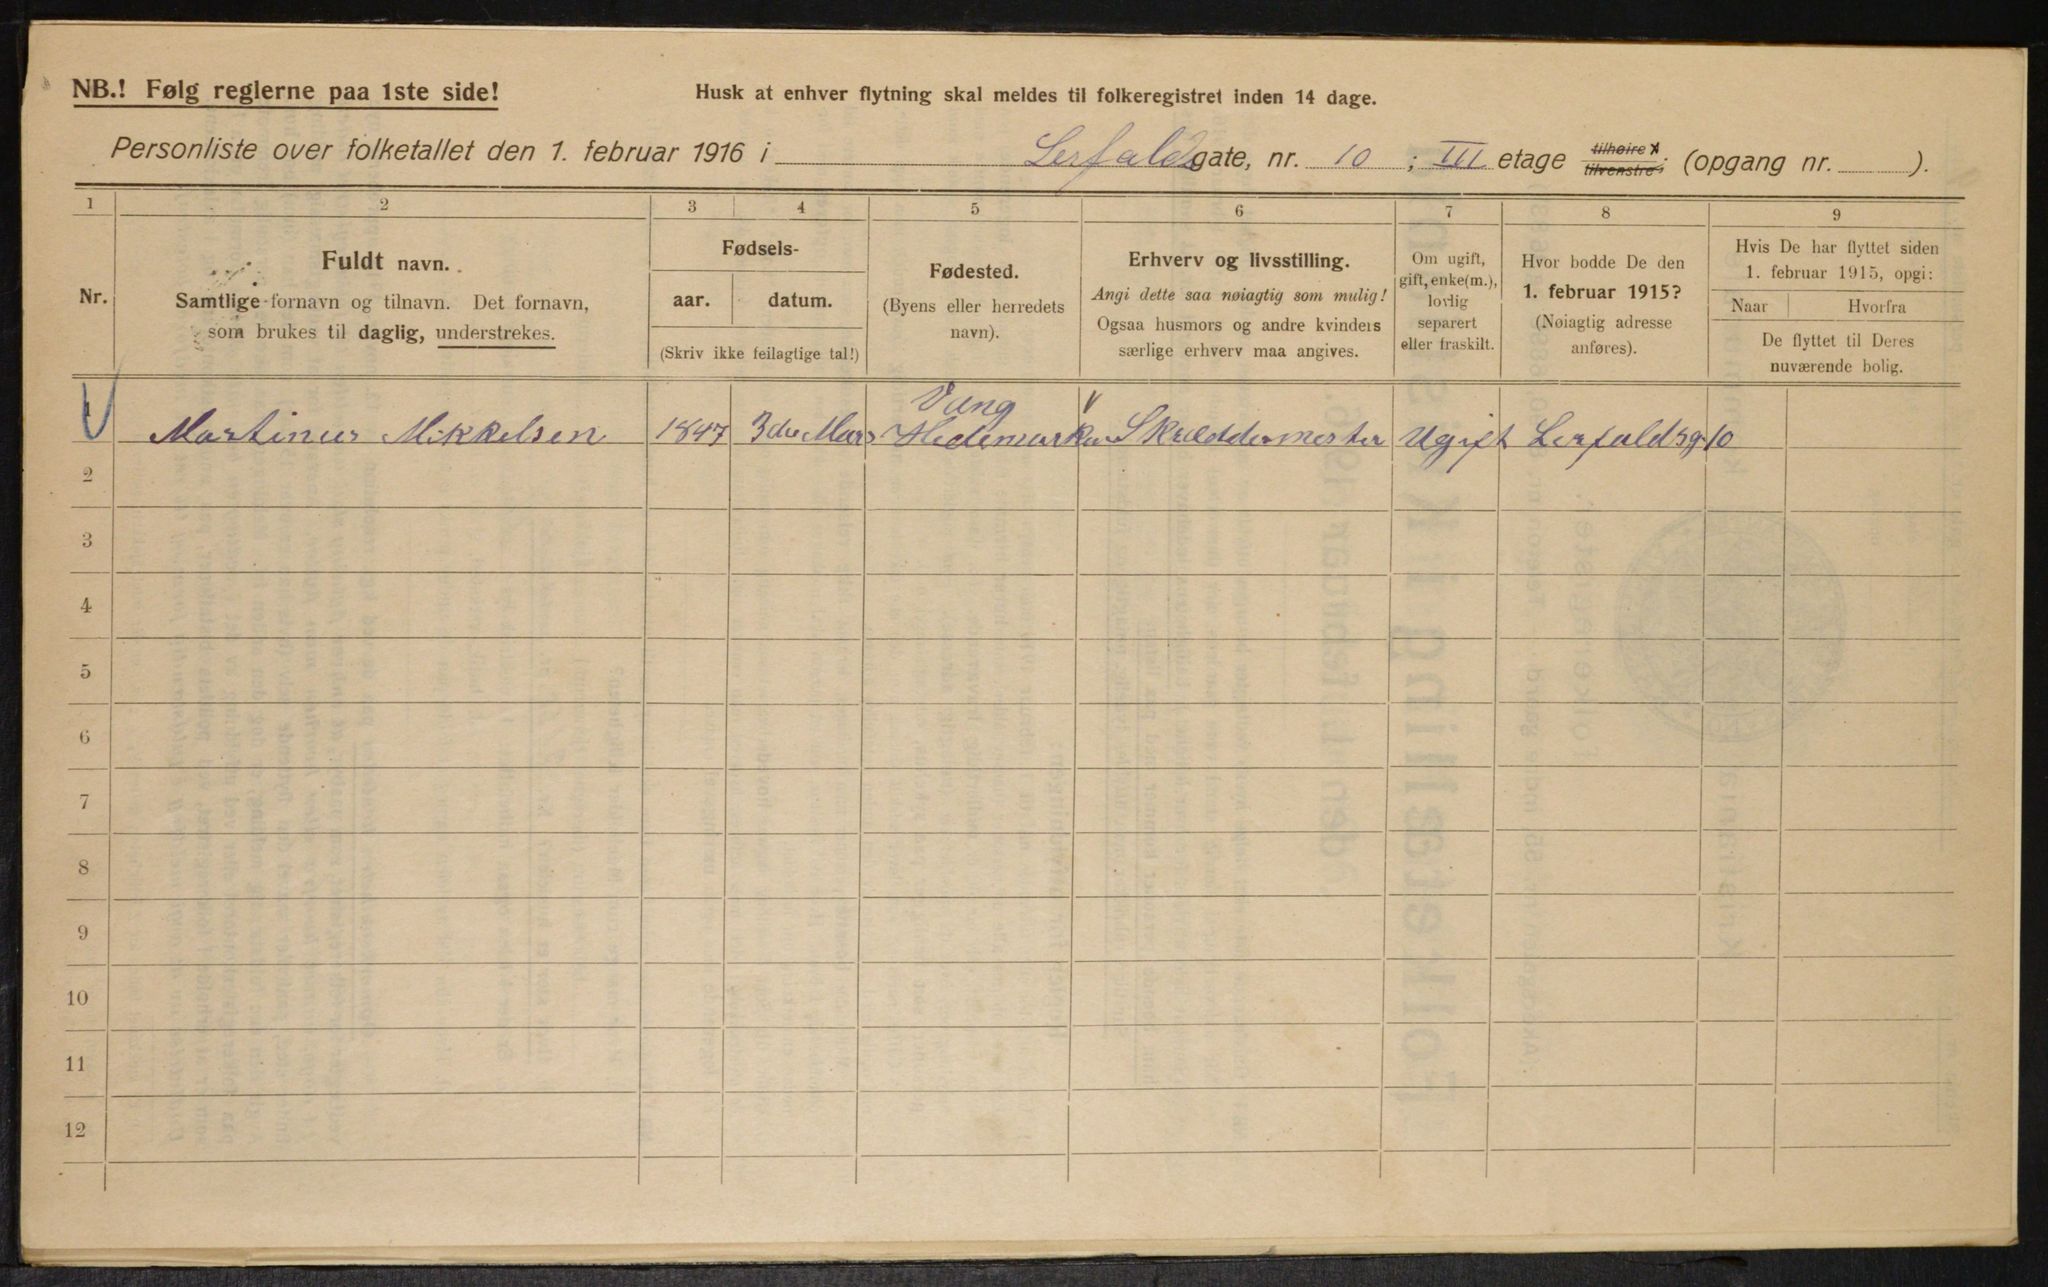 NB.! Følg reglerne paa 1ste side!
Husk at enhver flytning skal meldes til folkeregistret inden 14 dage.
Personliste over folketallet den 1. februar 1916 i Lerfaldsgate, nr. 10 ; III etage tilhøire tilvenstre ; (opgang nr. ).
1 2 3 4 5 6 7 8 9
Nr.
Fuldt navn.
Samtlige fornavn og tilnavn. Det fornavn,
som brukes til daglig, understrekes.
Fødsels-
aar. datum.
(Skriv ikke feilagtige tal!)
Fødested.
(Byens eller herredets
navn).
Erhverv og livsstilling.
Angi dette saa nøiagtig som mulig!
Ogsaa husmors og andre kvinders
særlige erhverv maa angives.
Om ugift,
gift, enke(m.),
lovlig
separert
eller fraskilt.
Hvor bodde De den
1. februar 1915?
(Nøiagtig adresse
anføres).
Hvis De har flyttet siden
1. februar 1915, opgi:
Naar Hvorfra
De flyttet til Deres
nuværende bolig.
Vang
1 Martinus Mikkelsen 1847 3die Mars Hedemarken Skræddermester Ugift Lerfaldsg. 10
2
3
4
5
6
7
8
9
10
11
12